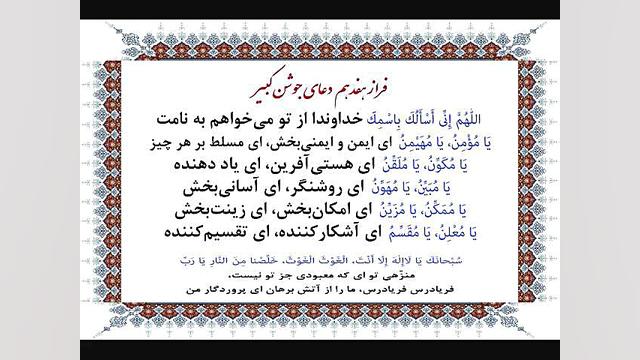 فراز هفدهم دعای جوشن کبیر
اللَّهُمَّ إِنِّی أَسْأَلُكَ بِاسْمِكَ خداوندا از تو می‌خواهم به نامت
یَا مُؤْمِنُ، یَا مُهَیْمِنُ ای ایمن و ایمنی‌بخش، ای مسلط بر هر چیز
یَا مُکَوِّنُ، یَا مُلَقِّنُ ای هستی‌آفرین، ای یاد دهنده
یَا مُبَیِّنُ، یَا مُهَوِّنُ ای روشنگر، ای آسانی‌بخش
یَا مُمَکِّنُ، یَا مُزَیِّنُ ای امکان‌بخش، ای زینت‌بخش
یَا مُعْلِنُ، یَا مُقَسِّمُ ای آشکارکننده، ای تقسیم‌کننده
سُبْحَانَكَ یَا لاَإِلَهَ إِلا أَنْتَ. الْغَوْثَ الْغَوْثَ. خَلِّصْنَا مِنَ النَّارِ یَا رَبِّ
منزّهی تو ای که معبودی جز تو نیست،
فریادرس فریادرس، ما را از آتش برهان ای پروردگار من